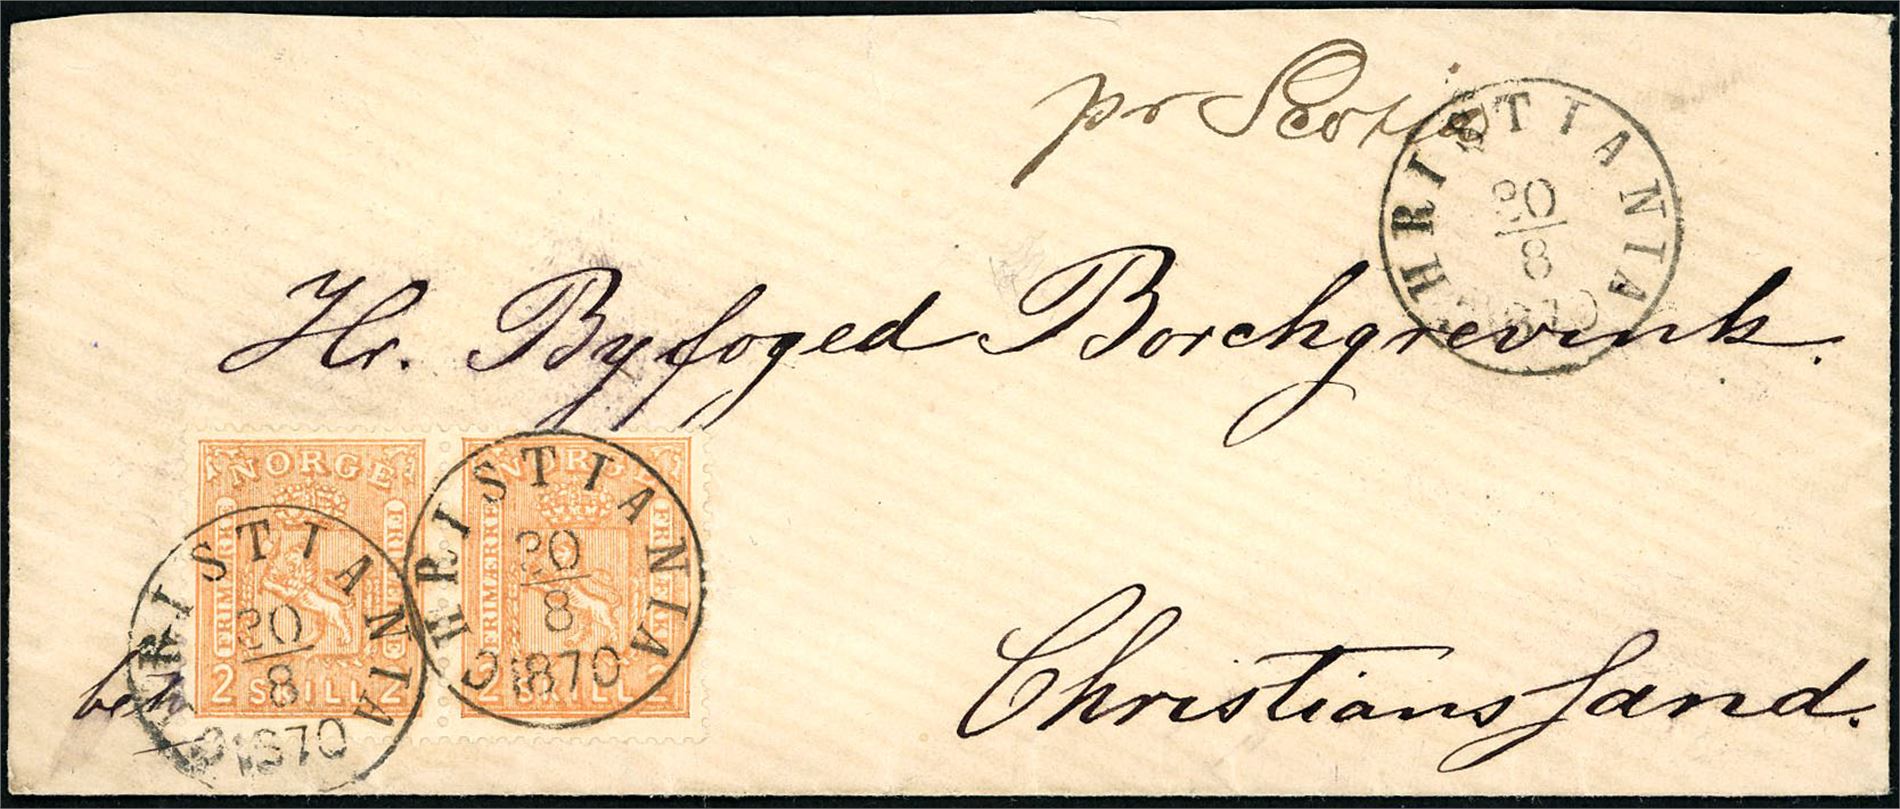 pr Scotia
CHRISTIANIA
20
8
1870
Hr. Byfoged Borchgrevink.
NORGE
FRIMÆRKE FRIMÆRKE
2 SKILL 2
CHRISTIANIA
20
8
1870
NORGE
FRIMÆRKE FRIMÆRKE
2 SKILL 2
CHRISTIANIA
20
8
1870
Christianssand.